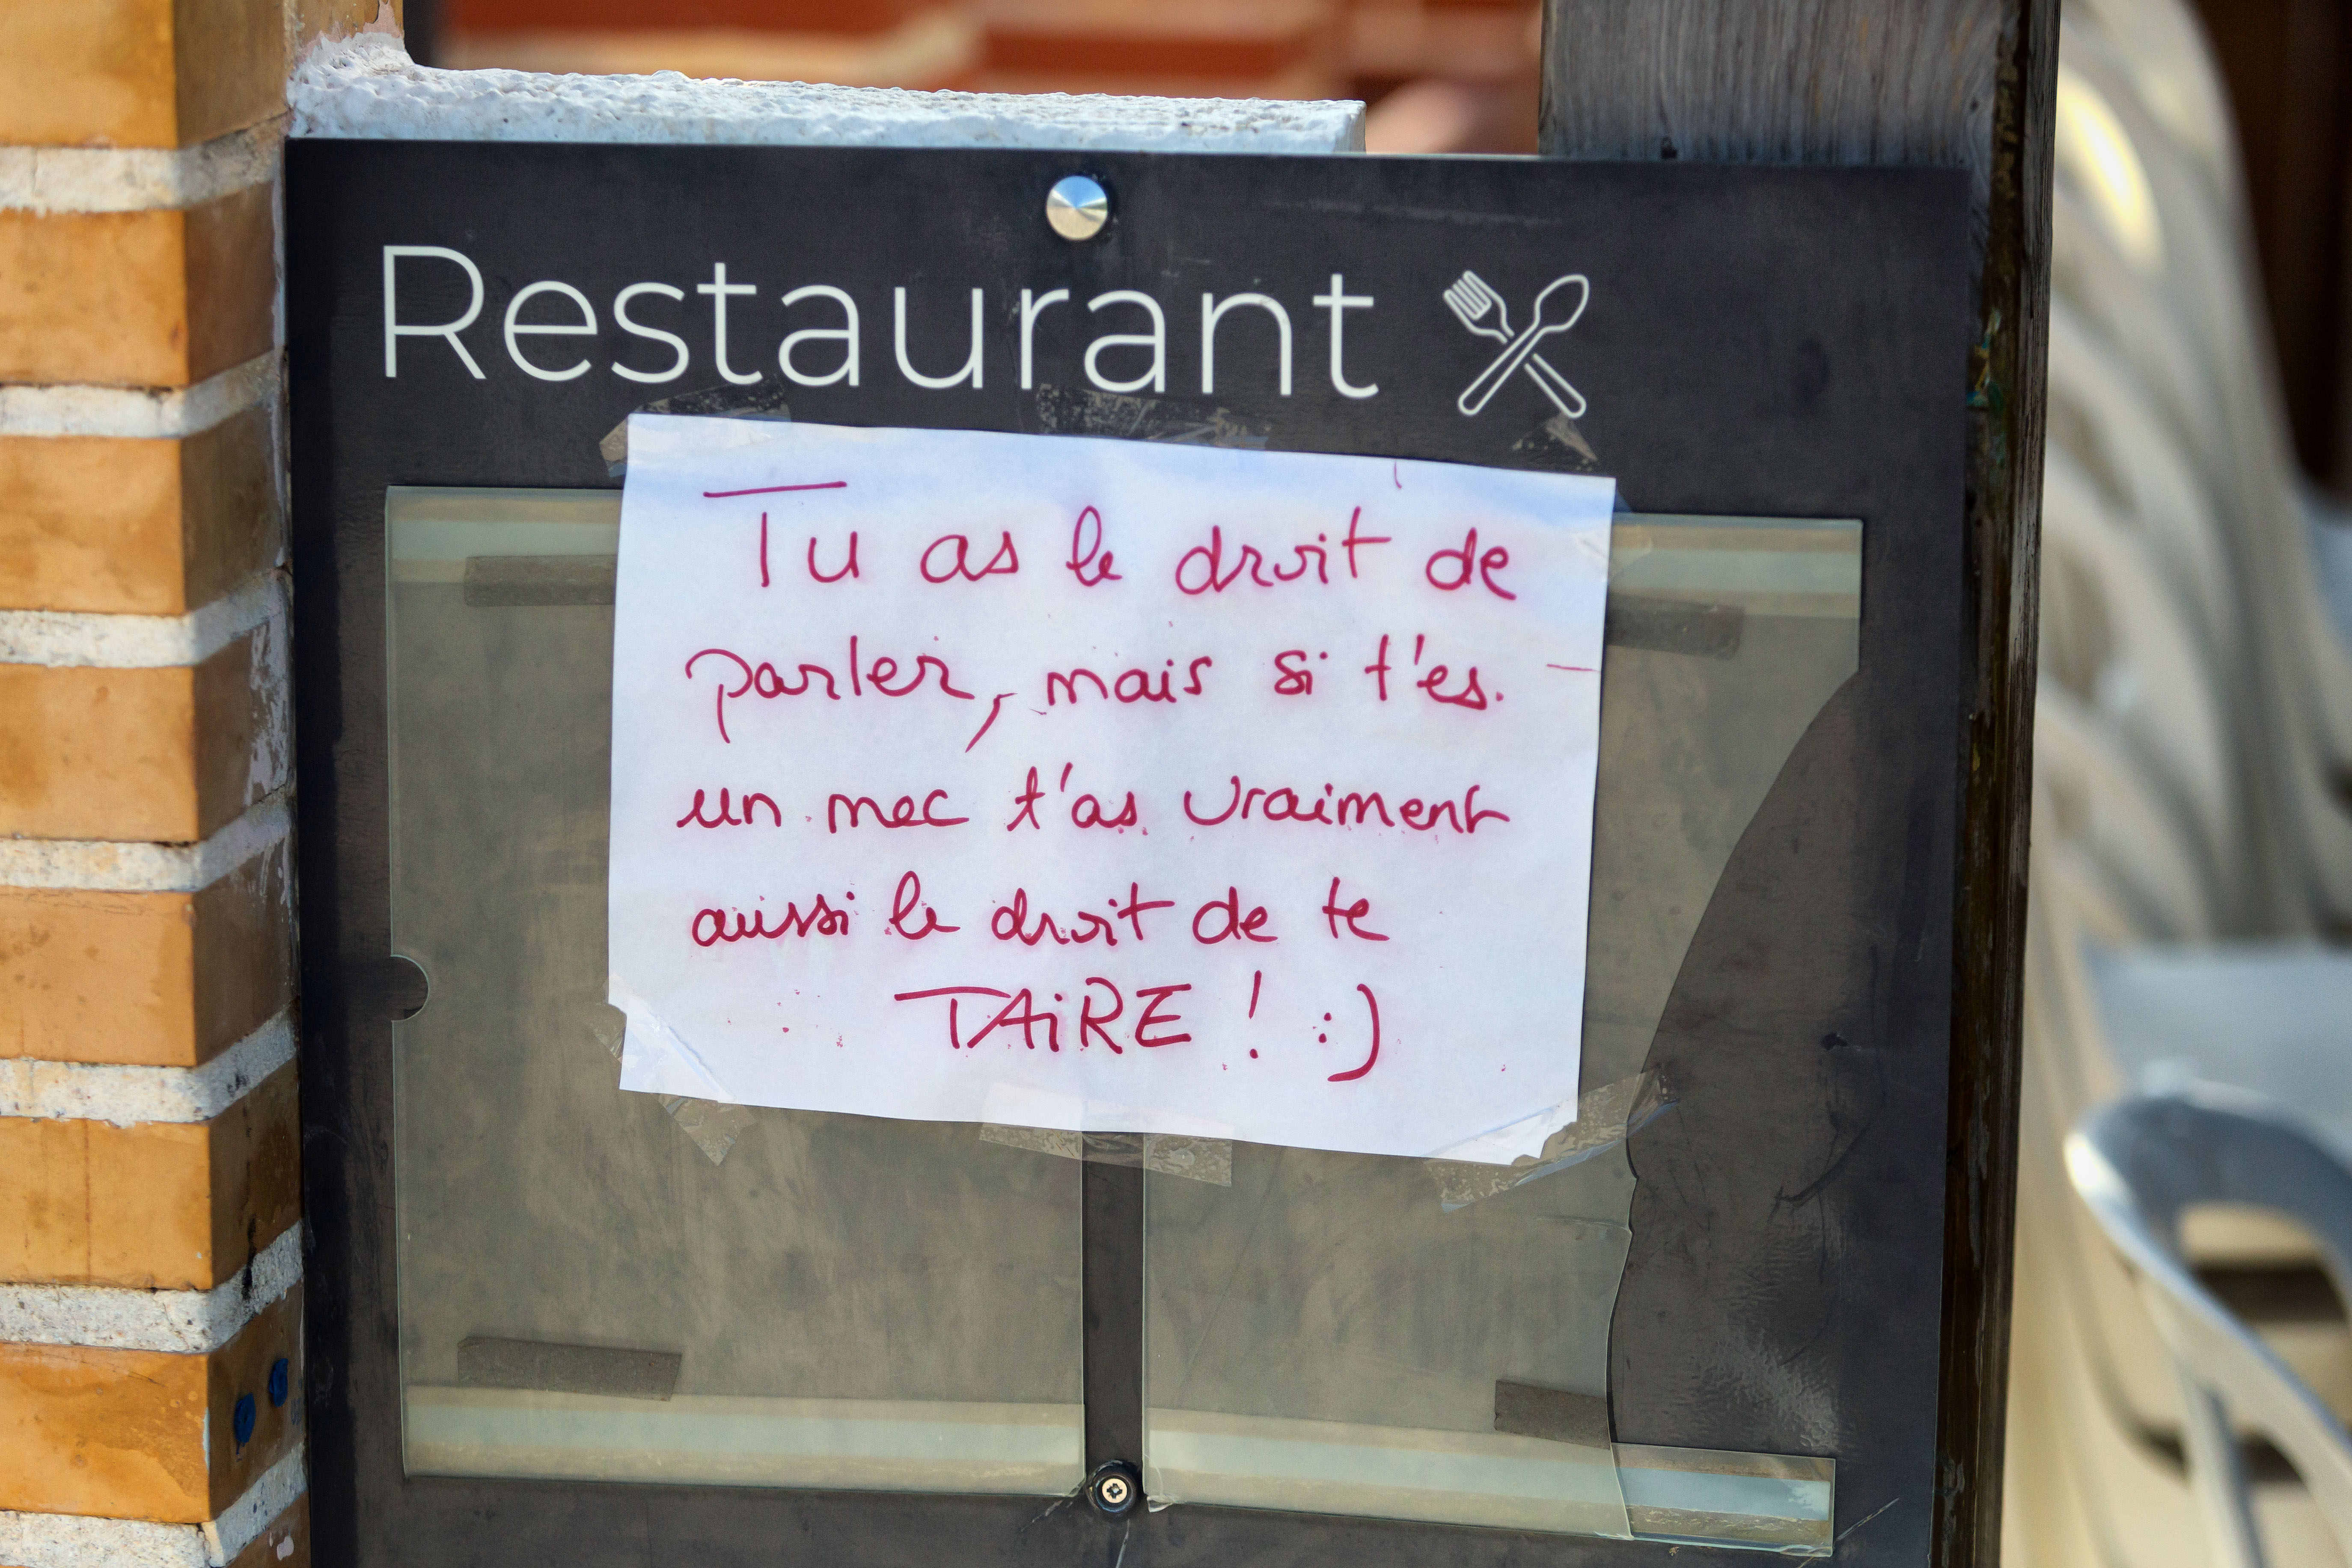 Restaurant
Tu as le droit de
parler, mais si t'es.
un mec t'as vraiment
aussi le droit de te
TAiRE ! :)